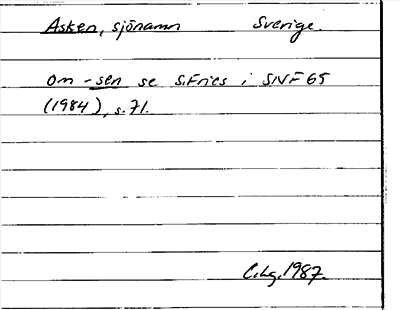 Asken, sjönamn Sverige.
Om -sen se S.Fries i SNF 65
(1984), s.71.
C.Lg. 1987.